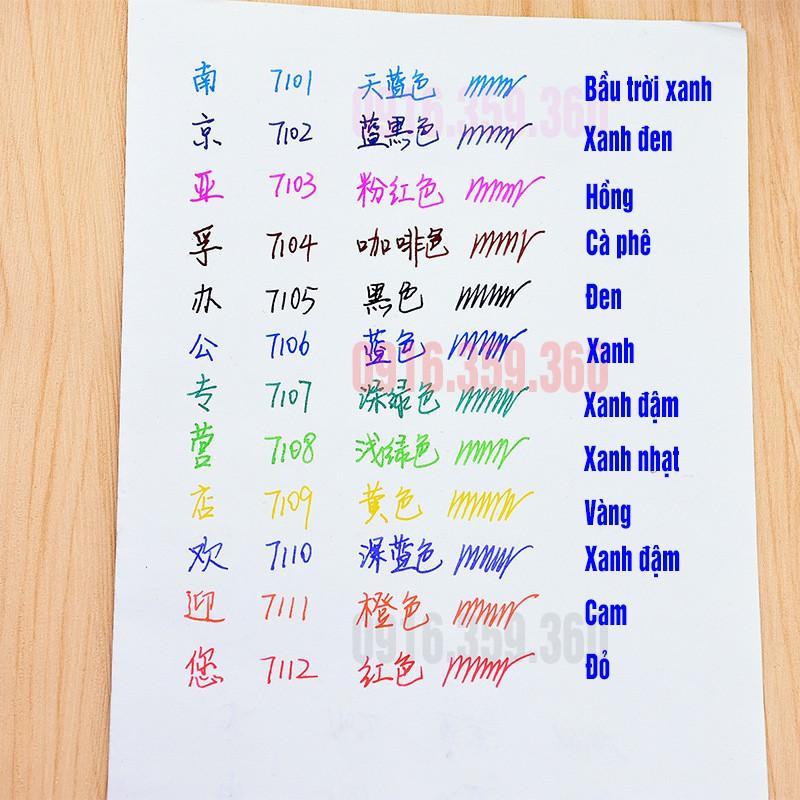 南 7101 天蓝色 Bầu trời xanh
0916.359.360
京 7102 蓝黑色 Xanh đen
亚 7103 粉红色 Hồng
孚 7104 咖啡色 Cà phê
办 7105 黑色 Đen
公 7106 蓝色 Xanh
0916.359.360
专 7107 深绿色 Xanh đậm
营 7108 浅绿色 Xanh nhạt
店 7109 黄色 Vàng
欢 7110 深蓝色 Xanh đậm
迎 7111 橙色 Cam
0916.359.360
您 7112 红色 Đỏ